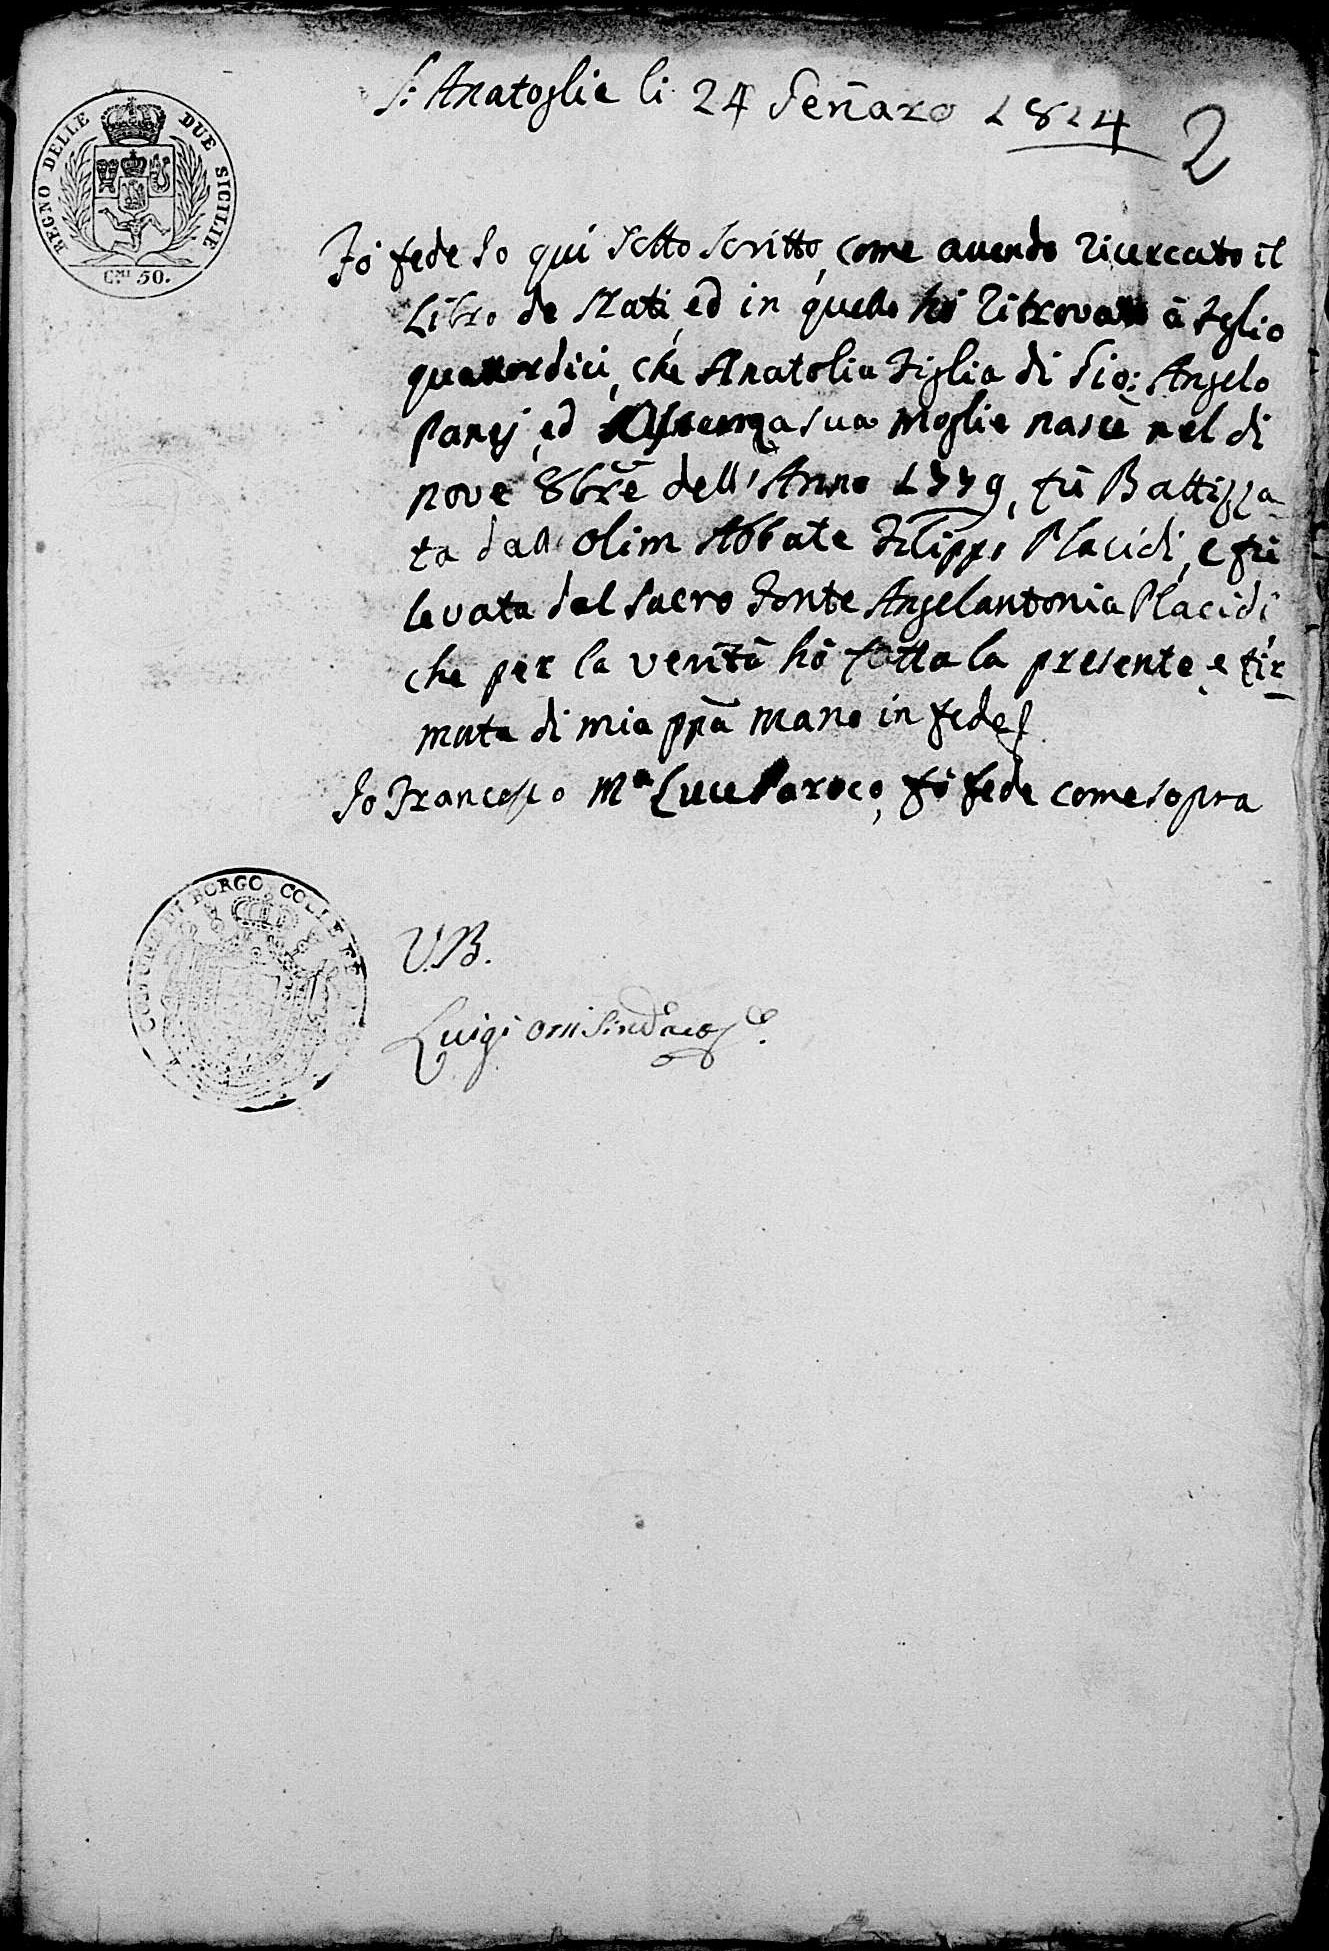 S. Anatoglie li 24 Gennaro 1824
2
REGNO DELLE DUE SICILIE
C.MI 50.
Fò fede Io qui sotto scritto, come avendo ricercato il
Libro de Nati, ed in quello hò ritrovato à foglio
quattordici, che Anatolia Figlia di Gio: Angelo
Panej, ed sua moglie nascè nel di
nove 8bre dell'Anno 1779, fù Battizza-
ta dall olim Abbate Filippo Placidi, e fù
levata dal sacro Fonte Angelantonia Placidi
che per la verità hò fatta la presente, e fir-
mata di mia ppa mano in fede
Io Francesco Ma Luce Paroco, fò fede come sopra
COMUNE DI BORGO COLLE
V.B.
Luigi Sindaco